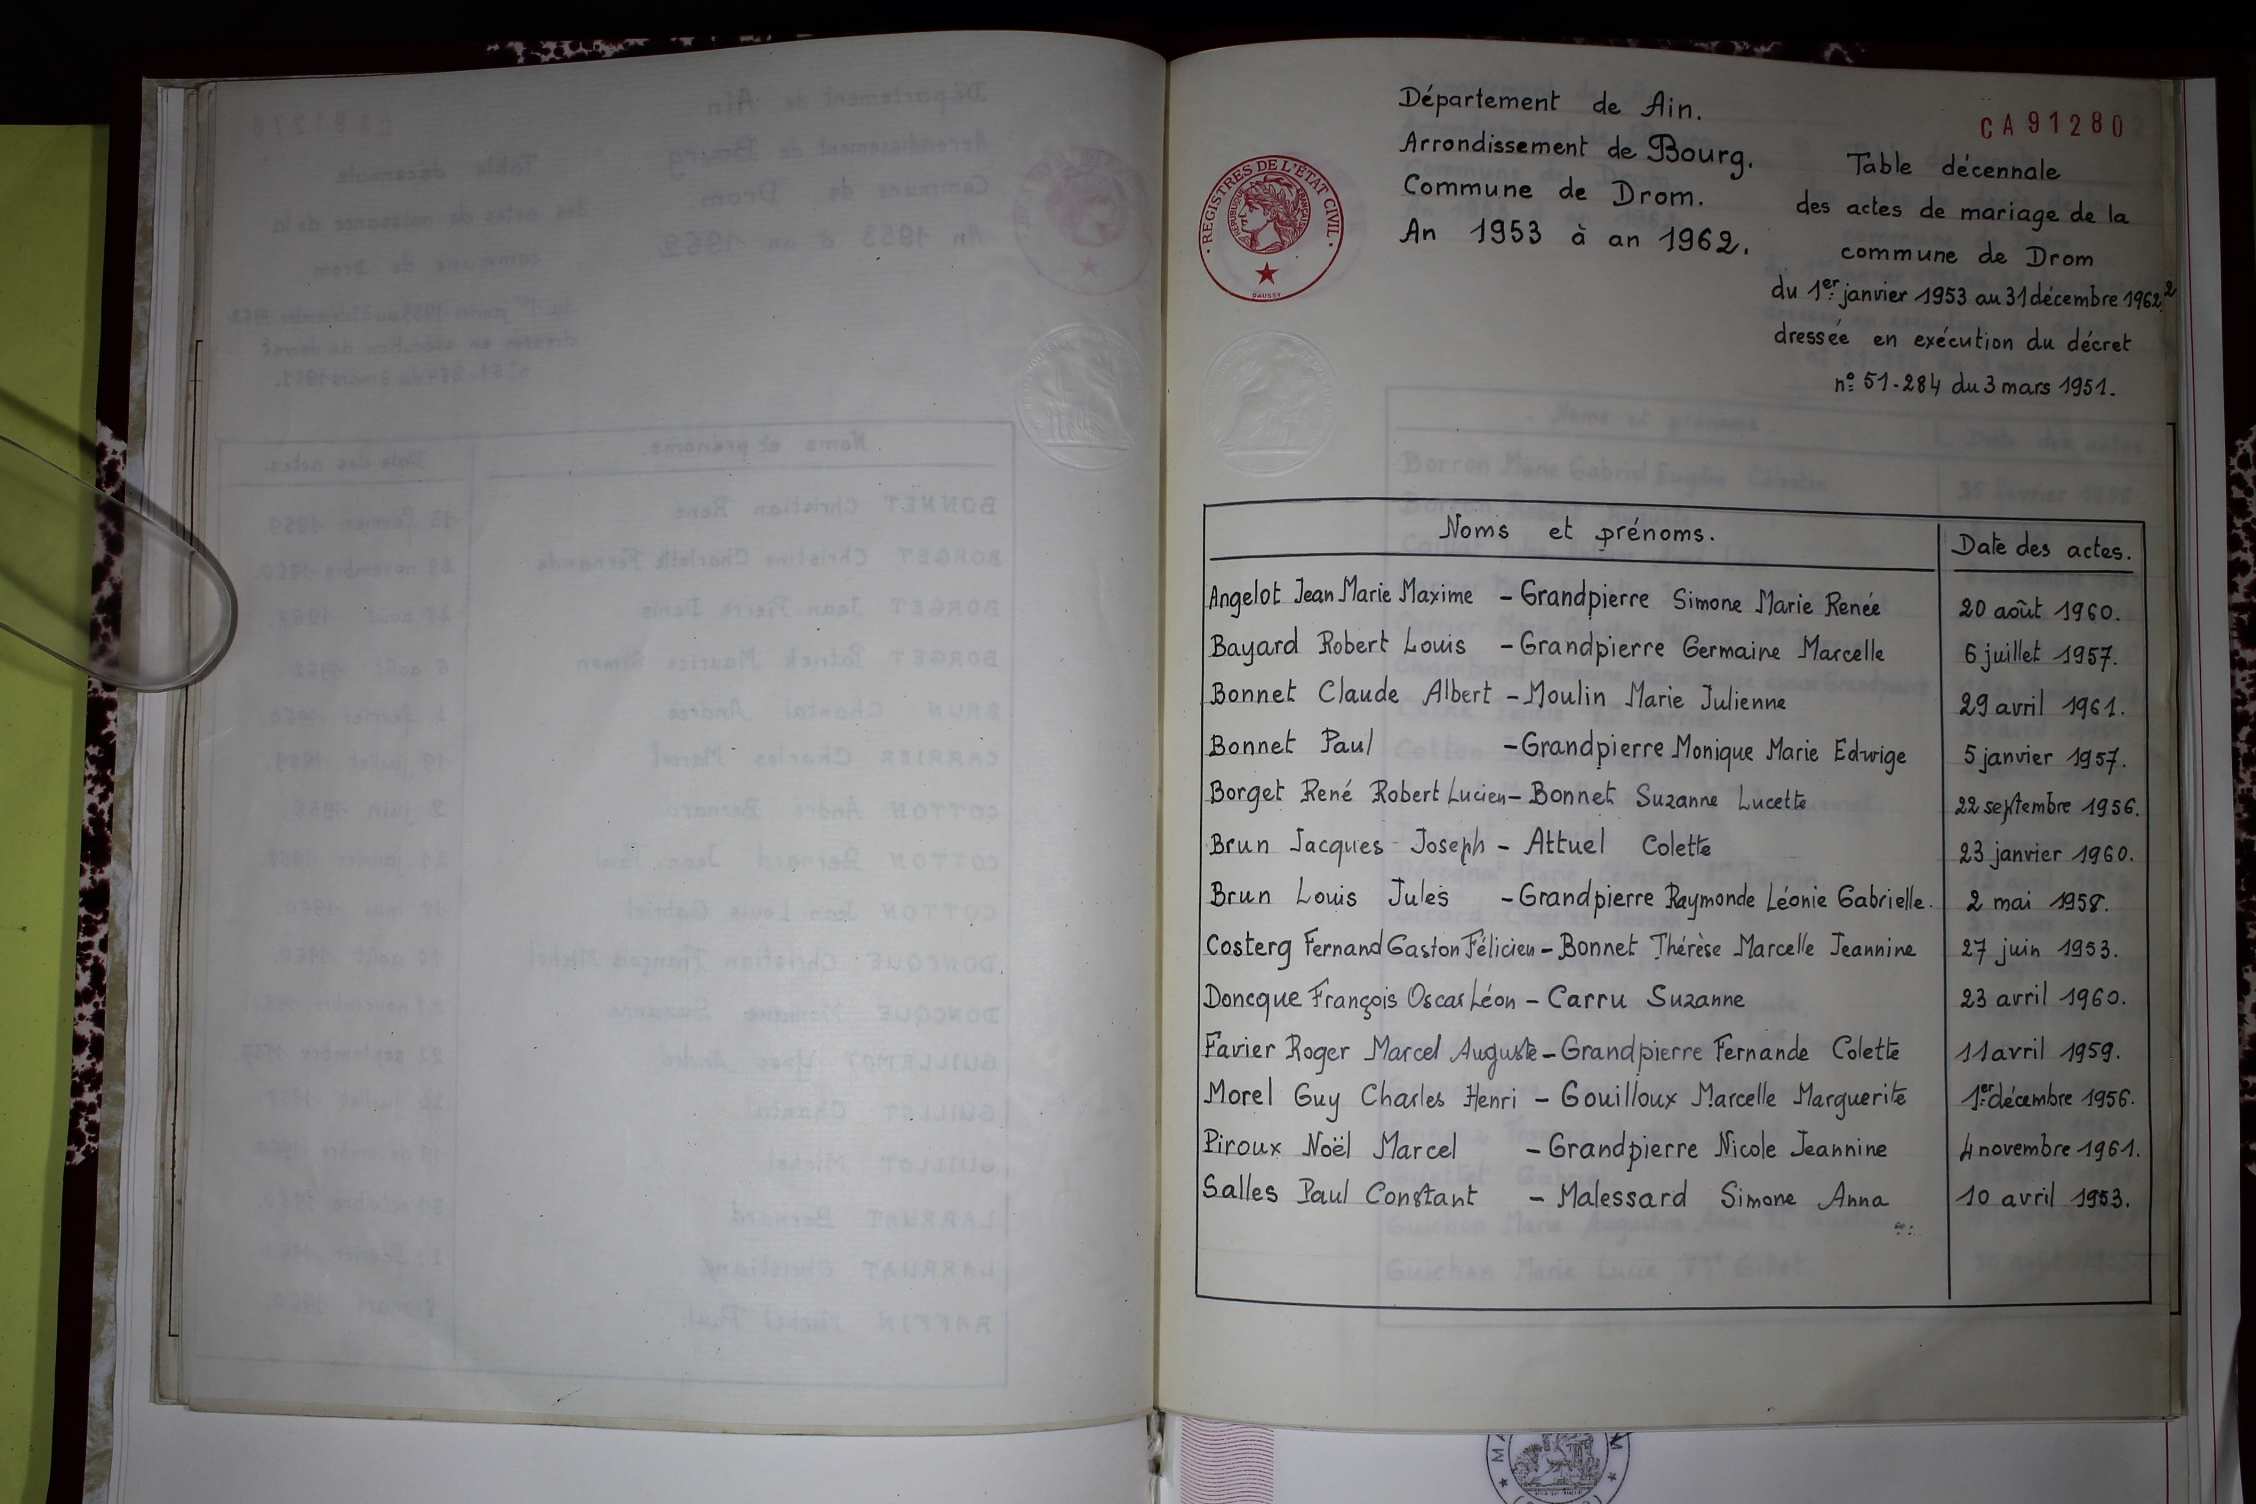 Département de Ain.
Arrondissement de Bourg.
Commune de Drom.
An 1953 à an 1962.
REGISTRES DE L'ÉTAT CIVIL
RÉPUBLIQUE FRANÇAISE
DAUSSY
CA91280
Table décennale
des actes de mariage de la
commune de Drom
du 1er janvier 1953 au 31 décembre 1962
dressée en exécution du décret
nº 51-284 du 3 mars 1951.
Noms et prénoms. Date des actes.
Angelot Jean Marie Maxime - Grandpierre Simone Marie Renée 20 août 1960.
Bayard Robert Louis - Grandpierre Germaine Marcelle 6 juillet 1957.
Bonnet Claude Albert - Moulin Marie Julienne 29 avril 1961.
Bonnet Paul - Grandpierre Monique Marie Edwige 5 janvier 1957.
Borget René Robert Lucien - Bonnet Suzanne Lucette 22 septembre 1956.
Brun Jacques Joseph - Attuel Colette 23 janvier 1960.
Brun Louis Jules - Grandpierre Raymonde Léonie Gabrielle. 2 mai 1958.
Costerg Fernand Gaston Félicien - Bonnet Thérèse Marcelle Jeannine 27 juin 1953.
Doncque François Oscar Léon - Carru Suzanne 23 avril 1960.
Favier Roger Marcel Auguste - Grandpierre Fernande Colette 11 avril 1959.
Morel Guy Charles Henri - Gouilloux Marcelle Marguerite 1er décembre 1956.
Piroux Noël Marcel - Grandpierre Nicole Jeannine 4 novembre 1961.
Salles Paul Constant - Malessard Simone Anna 10 avril 1953.